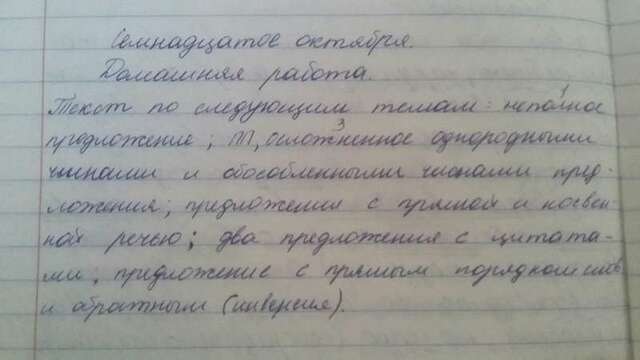 Семнадцатое октября.
Домашняя работа.
Текст по следующим темам: неполное 1
предложение; П, осложненное 3 однородными
членами и обособленными членами пред-
ложения; предложения с прямой и косвен-
ной речью; два предложения с цитата-
ми; предложение с прямым порядком слов
и обратным (инверсия).